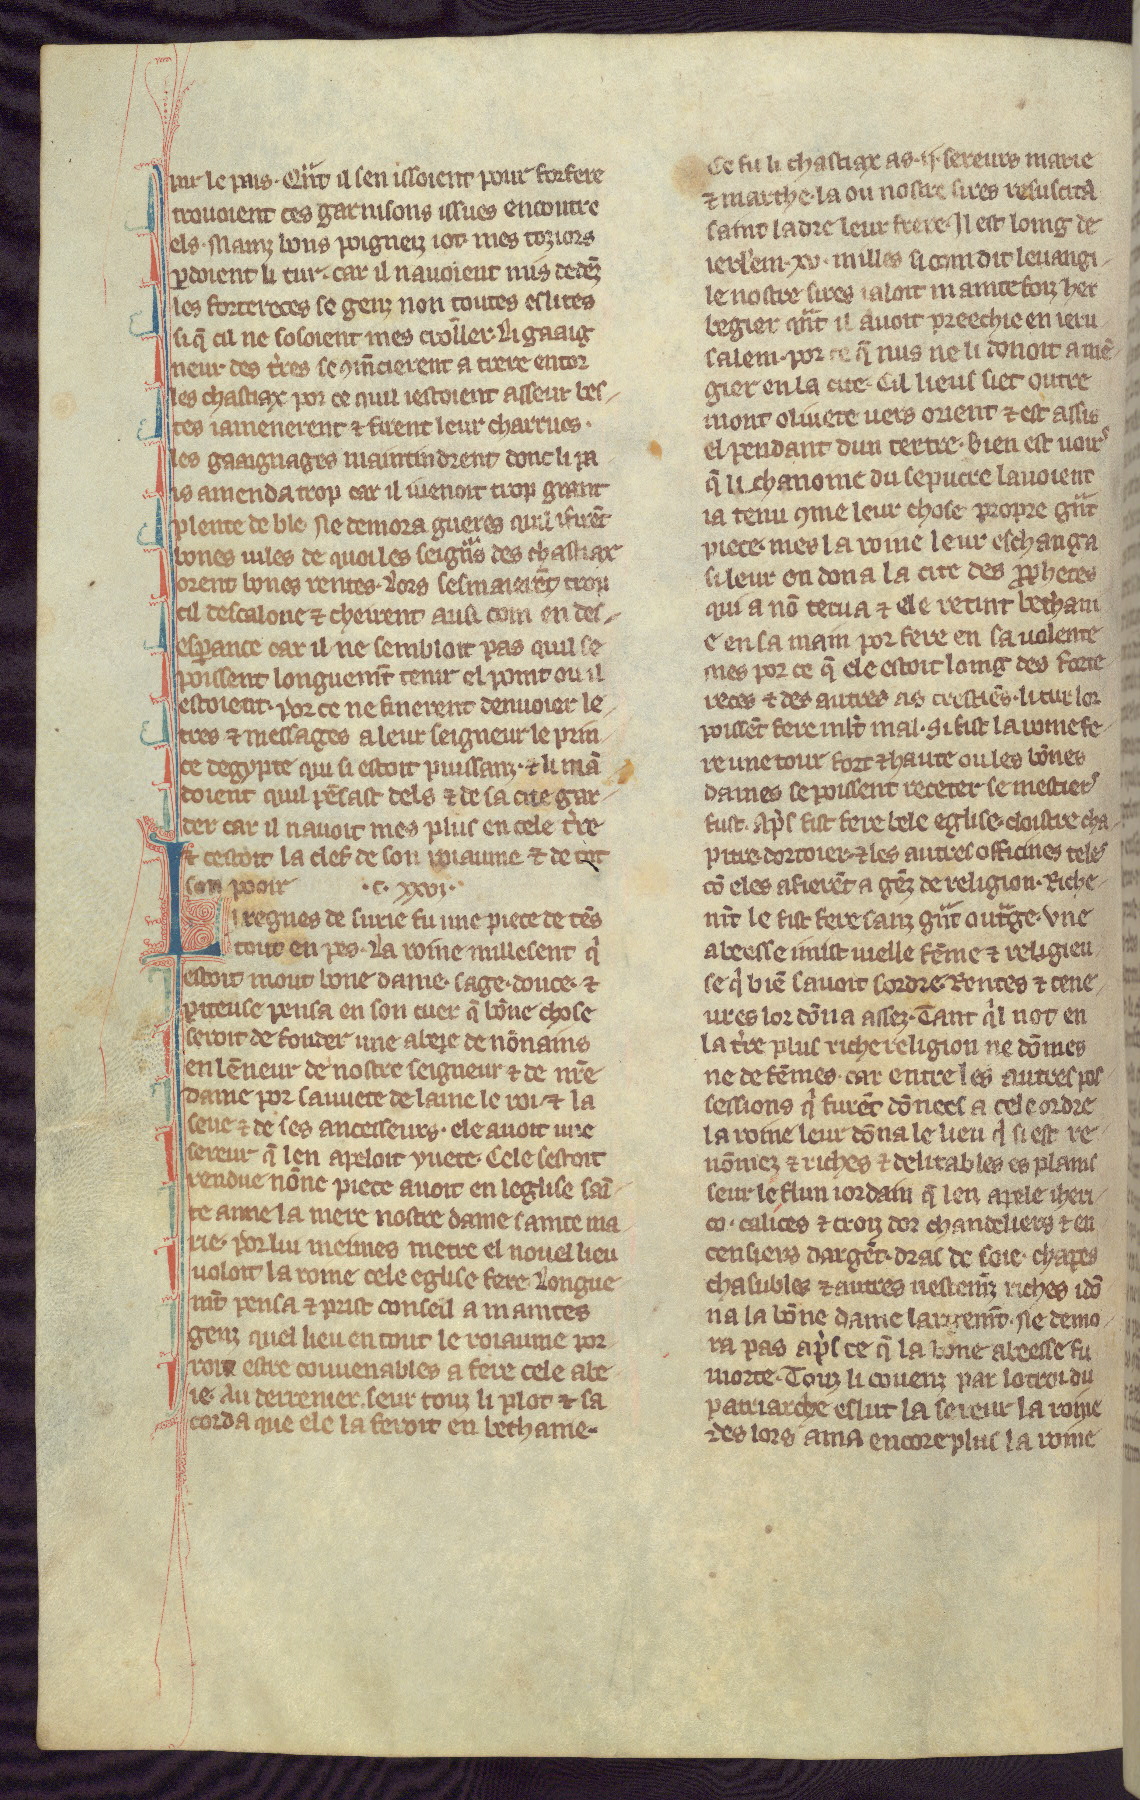 par le pais. Qn̄t il sen issoient pour forfere
trouoient ces garnisons issues encontre
els. Mainz bons poigneiz iot. mes toziors
ꝑdoient li tur. car il nauoient nus dedēz
les fortereces se genz non toutes eslites
si q̄ cil ne soloient mes croller. Li gaaig
neur des t̄res se ꝯm̄cierent a trere entor
les chastiax por ce quil iestoient asseur bes-
tes iamenerent ⁊ firent leur charrues.
les gaaignages maintindrent donc li pa
is amenda trop car il iuenoit trop grant
plente de ble. Ne demora gueres quil ifirēt
bones uiles de quoi les seign̄s des chastiax
orent bones rentes. Lors sesmaierēt trop
cil descalone ⁊ cheirent ausi com en des-
esꝑance car il ne sembloit pas quil se
poissent longuem̄t tenir el point ou il
estoient. por ce ne finerent denuoier le-
tres ⁊ messages a leur seigneur le prin-
ce degypte qui si estoit puissanz. ⁊ li mā
doient quil pēsast dels ⁊ de sa cite gar-
der car il nauoit mes plus en cele t̄re
⁊ cestoit la clef de son roiaume ⁊ de tot
son pooir .c. xxvi.
Li regnes de surie fu une piece de tēs
tout en pes. La roine millesent q̄
estoit mout bone dame. sage. douce. ⁊
piteuse pensa en son cuer q̄ bōne chose
seroit de fonder une abeie de nōnains
en lēneur de nostre seigneur ⁊ de nr̄e
dame por sauuete de lame le roi. ⁊ la
seue ⁊ de ses ancesseurs. ele auoit une
sereur q̄ len apeloit yuete. Cele sestoit
rendue nōne piece auoit en leglise sai-
te anne la mere nostre dame sainte ma
rie. por lui meimes metre el nouel lieu
uoloit la roine cele eglise fere. Longue
mt̄ pensa ⁊ prist conseil a maintes
genz quel lieu en tout le roiaume por
roit estre conuenables a fere cele abe-
ie. Au derrenier seur touz li plot ⁊ sa
corda que ele la feroit en bethanie.
Ce fu li chastiax as .ii. sereurs marie
⁊ marthe. la ou nostre sires resuscita
saint ladre leur frere. Il est loing de
ierl̄em .xv. milles si com dit leuangi-
le nostre sires ialoit maintefoiz her
begier qn̄t il auoit preechie en ieru
salem. por ce q̄ nus ne li donoit a mē-
gier en la cite. Cil lieus siet outre
mont oliuete uers orient ⁊ est assis
el pendant dun tertre. bien est uoirs
q̄ li chanoine du sepucre lauoient
ia tenu ꝯme leur chose propre gn̄t
piece. mes la roine leur eschanga
si leur en dona la cite des ꝓphetes
qui a nō tecua ⁊ ele retint bethani
e en sa main por fere en sa uolente
mes por ce q̄ ele estoit loing des forte
reces ⁊ des autres as crestiēs. li tur lor
poissēt fere ml̄t mal. Si fist la roine fe-
re une tour fort ⁊ haute ou les bōnes
dames se poissent receter se mestiers
fust. Ap̄s fist fere bele eglise. cloistre cha-
pitre. dortoier. ⁊ les autres officines teles
cō eles afierēt a gēz de religion. Riche-
mt̄ le fist fere sanz gn̄t outrage. Vne
abeesse imist uielle fēme ⁊ religieu-
se q̄ biē sauoit sordre. Rentes ⁊ tene-
ures lor dōna assez. Tant q̄l not en
la t̄re plus riche religion ne dōmes
ne de fēmes. car entre les autres pos
sessions q̄ furēt dōnees a cele ordre
la roine leur dōna le lieu q̄ si est re-
nōmez ⁊ riches ⁊ delitables es plains
seur le flun iordain q̄ len apele iheri-
co. calices ⁊ croiz dor chandeliers ⁊ en
censiers dargēt. dras de soie. chapes
chasubles ⁊ autres uestemz̄ riches idō
na la bōne dame largemt̄. Ne demo-
ra pas ap̄s ce q̄ la bone abeesse fu
morte. Touz li couenz par lotroi du
patriarche eslut la sereur la roine
des lors ama encore plus la roine